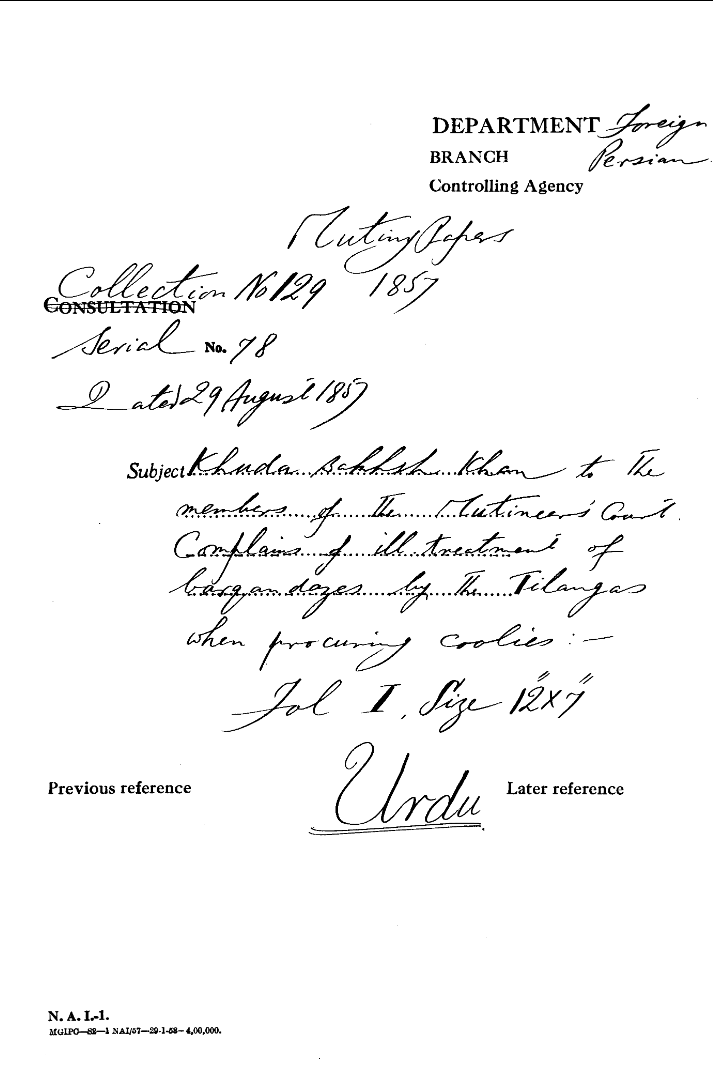 DEPARTMENT Foreign
BRANCH Persian
Controlling Agency
Mutiny Papers
Collection No 129 1857
CONSULTATION
Serial No. 78
Dated 29 August 1857
Subject Khuda Bakhsh Khan to the
members of the Mutineers' Court.
Complains of ill treatment of
barqandazes by the Tilangas
when procuring coolies :—
Fol I, Size 12"x7"
Previous reference
Urdu
Later reference
N. A. I.-1.
MGIPC—82—1 NAI/57—29-1-58—4,00,000.